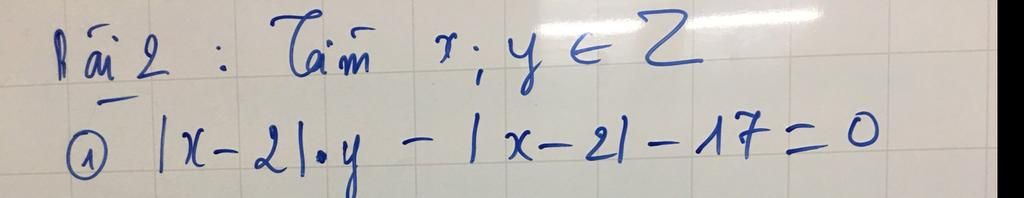 Bài 2 : Tìm x; y ∈ Z
① |x - 2|.y - |x - 2| - 17 = 0